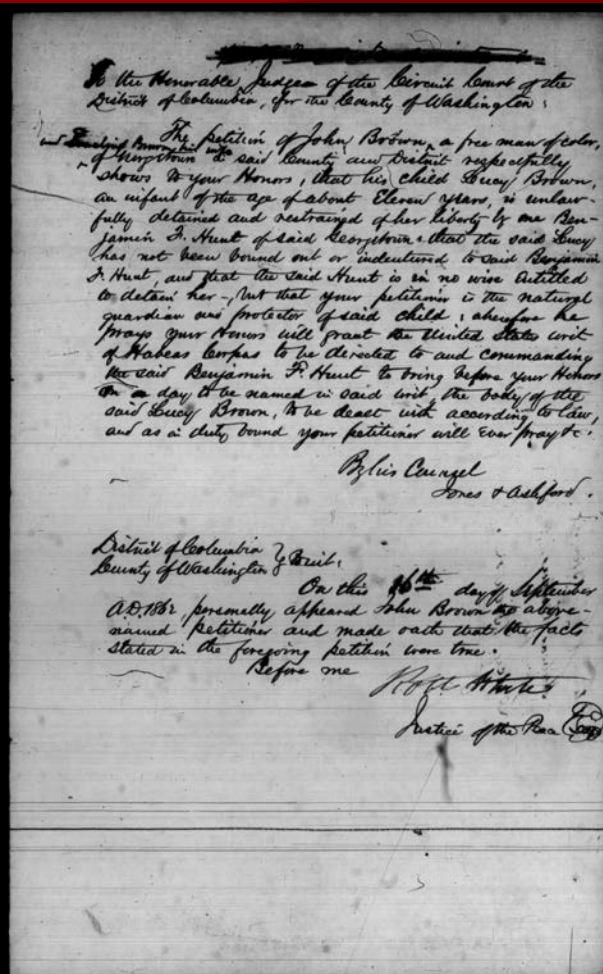 To the Honorable Judges of the Circuit Court of the
District of Columbia, for the County of Washington:
The petition of John Brown, a free man of color,
and Brown his wife
of Georgetown in said County and District respectfully
shows to your Honors, that his child Lucy Brown,
an infant of the age of about Eleven years, is unlaw-
fully detained and restrained of her liberty by one Ben-
jamin F. Hunt of said Georgetown: that the said Lucy
has not been bound out or indentured to said Benjamin
F. Hunt, and that the said Hunt is in no wise Entitled
to detain her-, but that your petitioner is the natural
guardian and protector of said child; wherefore he
prays your Honors will grant the United States writ
of Habeas Corpus to be directed to and commanding
the said Benjamin F. Hunt to bring before your Honors
on a day to be named in said writ, the body of the
said Lucy Brown, to be dealt with according to law,
and as in duty bound your petitioner will Ever pray &c.
By his Counsel
Jones & Ashford.
District of Columbia
County of Washington
On this 16th day of September
A.D. 1862, personally appeared John Brown the above-
named petitioner and made oath that the facts
stated in the foregoing petition were true.
Before me
Robt White
Justice of the Peace